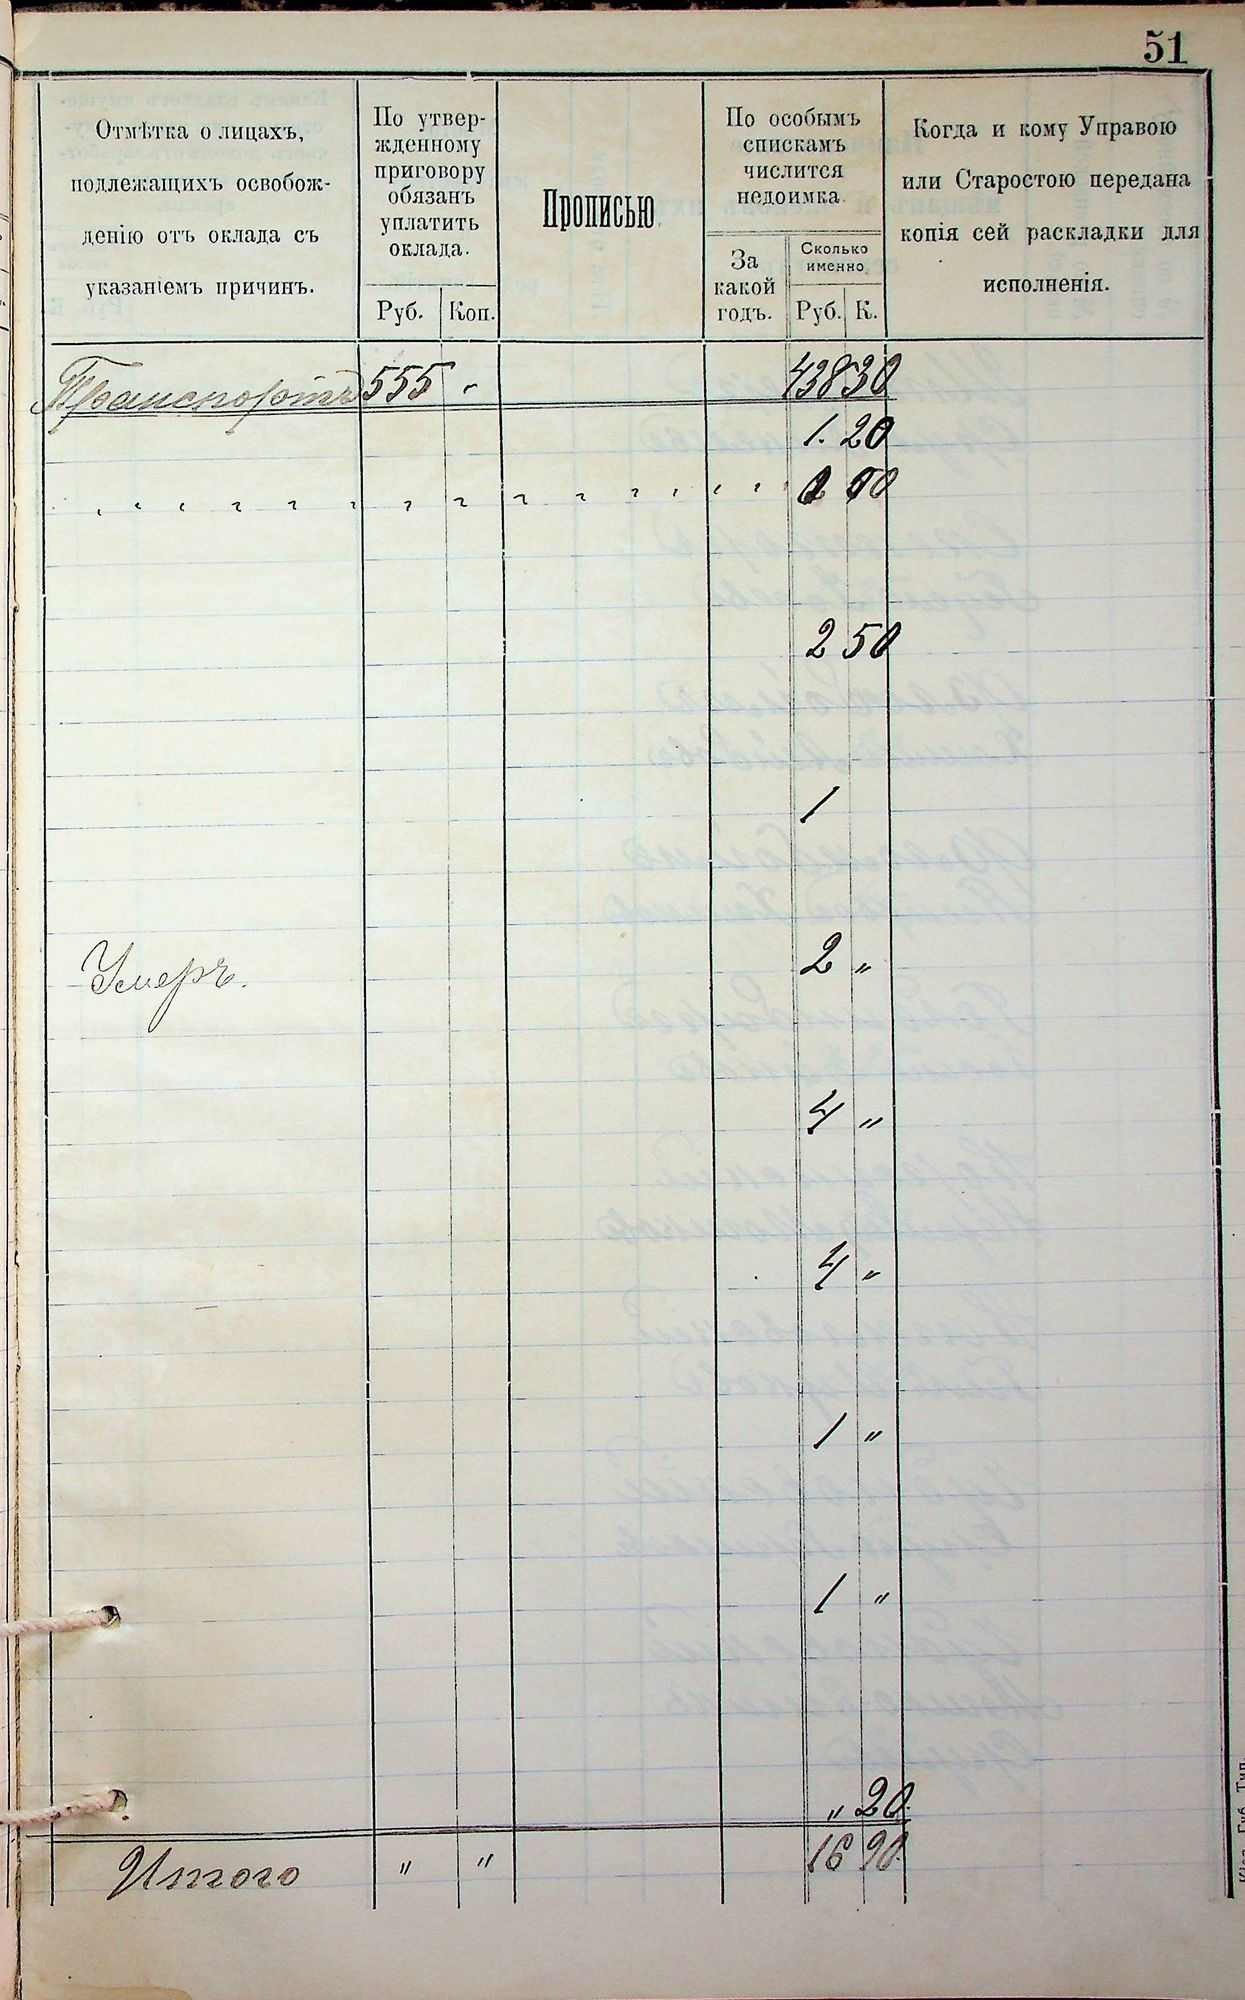 51
Отмѣтка о лицахъ,
подлежащихъ освобож-
денію отъ оклада съ
указаніемъ причинъ.
По утвер-
жденному
приговору
обязанъ
уплатить
оклада.
Руб. Коп.
Прописью
По особымъ
спискамъ
числится
недоимка.
За
какой
годъ.
Сколько
именно
Руб. К.
Когда и кому Управою
или Старостою передана
копія сей раскладки для
исполненія.
Транспортъ 555 " 438 30
1. 20
2 50
1
Умеръ. 2 "
4 "
4 "
1 "
1 "
" 20.
Итого " " 16 90.